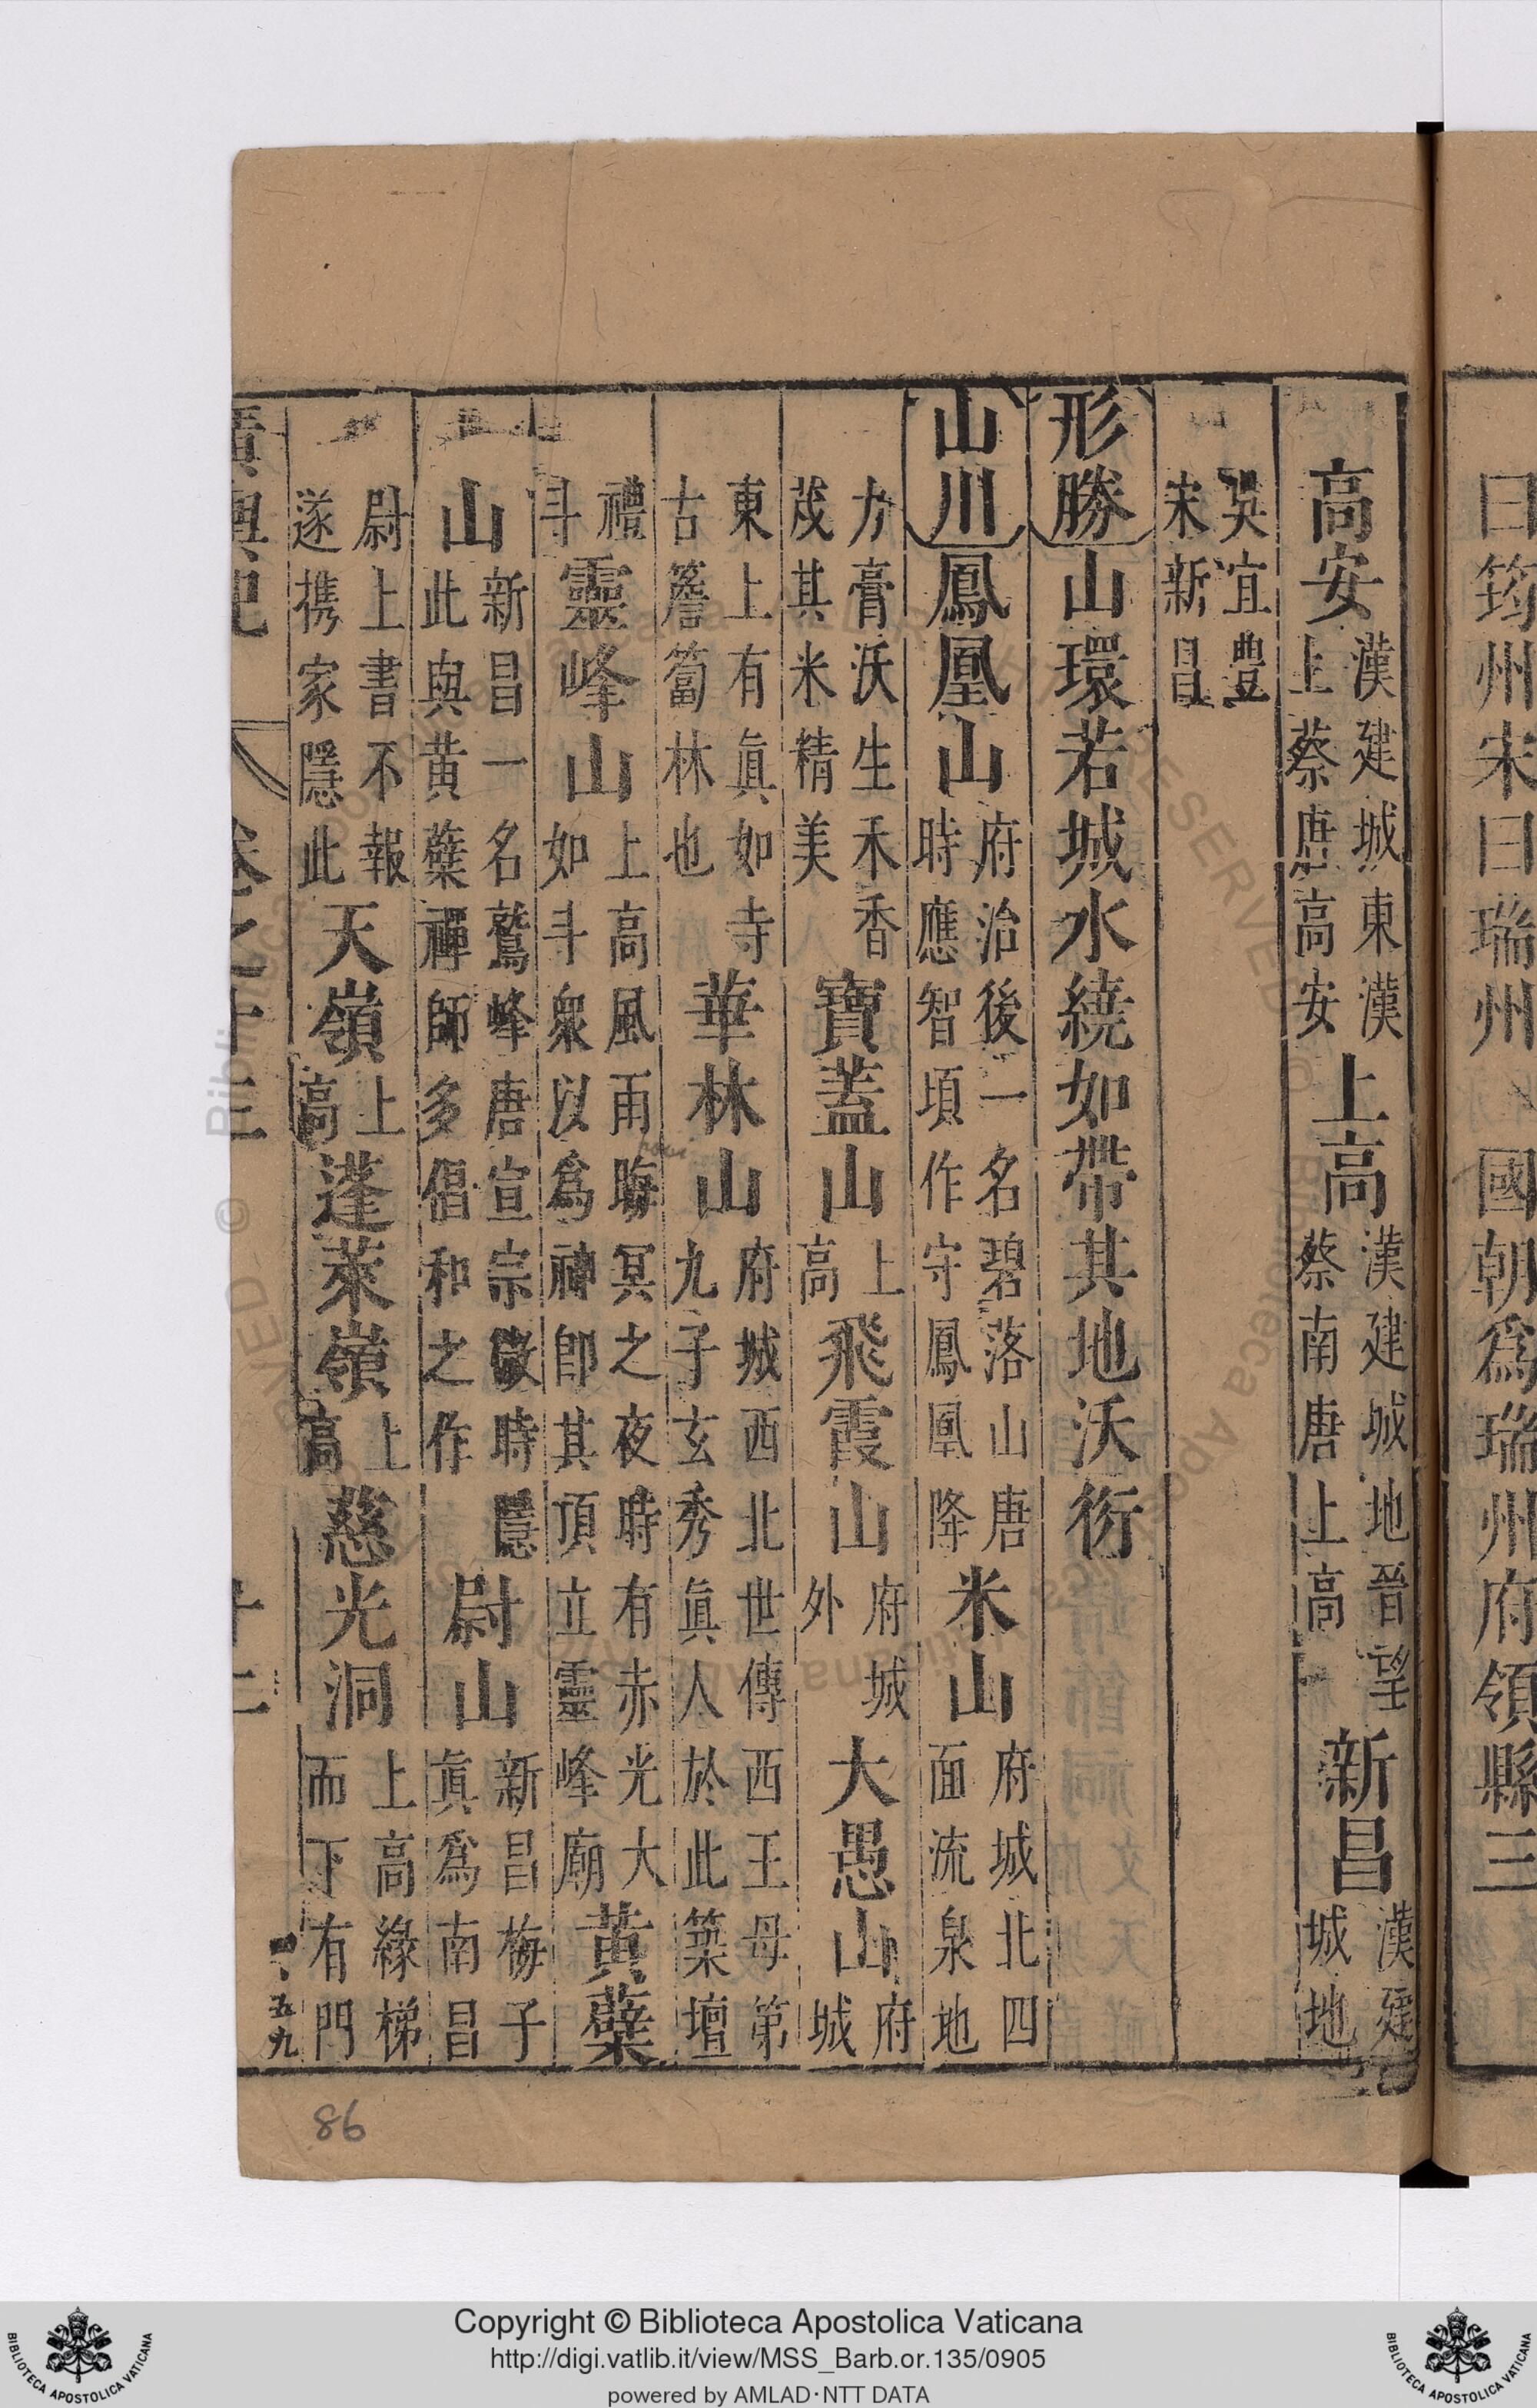 曰筠州宋曰瑞州國朝為瑞州府領縣三
高安漢建城東漢上蔡唐高安上高漢建城地晉望蔡南唐上高新昌漢建城地
吳宜豐宋新昌
形勝山環若城水繞如帶其地沃衍
山川鳳凰山府治後一名碧落山唐時應智頊作守鳳凰降米山府城北四面流泉地
力膏沃生禾香茂其米精美寶蓋山上高飛霞山府城外大愚山府城
東上有真如寺古簷蔔林也華林山府城西北世傳西王母第九子玄秀真人於此築壇
禮斗靈峰山上高風雨晦冥之夜時有赤光大如斗衆以為神即其頂立靈峰廟黃蘗
山新昌一名鷲峰唐宣宗微時隱此與黃蘗禪師多倡和之作尉山新昌梅子真為南昌
尉上書不報遂携家隱此天嶺上高蓬萊嶺上高慈光洞上高緣梯而下有門
廣輿記 卷之十三 十二
五九
86
Copyright © Biblioteca Apostolica Vaticana
http://digi.vatlib.it/view/MSS_Barb.or.135/0905
powered by AMLAD·NTT DATA
BIBLIOTECA APOSTOLICA VATICANA
BIBLIOTECA APOSTOLICA VATICANA